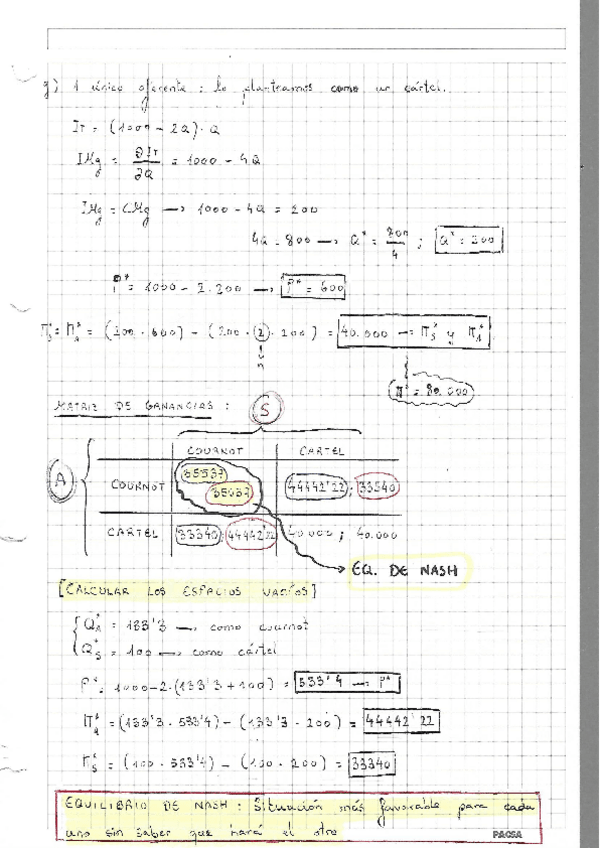 g) 1 único oferente : lo planteamos como un cártel.
IT = (1000 - 2Q) · Q
IMg = ∂IT/∂Q = 1000 - 4Q
IMg = CMg → 1000 - 4Q = 200
4Q = 800 → Q* = 800/4 ; Q* = 200
P* = 1000 - 2·200 → P* = 600
= (200 · 600) - (200 · 2 · 200) = 40.000 → Π*S y Π*A
n
Π* = 80.000
MATRIZ DE GANANCIAS : S
COURNOT CARTEL
A COURNOT 35537 35537 44442'22 ; 33340
CARTEL 33340 ; 44442'22 40.000 ; 40.000
EQ. DE NASH
[CALCULAR LOS ESPACIOS VACÍOS]
Q*A = 133'3 → como cournot
Q*S = 100 → como cártel
P* = 1000 - 2·(133'3 + 100) = 533'4 → P*
Π*A = (133'3 · 533'4) - (133'3 · 200) = 44442'22
Π*S = (100 · 533'4) - (100 · 200) = 33340
EQUILIBRIO DE NASH : Situación más favorable para cada
uno sin saber que hará el otro
PACSA